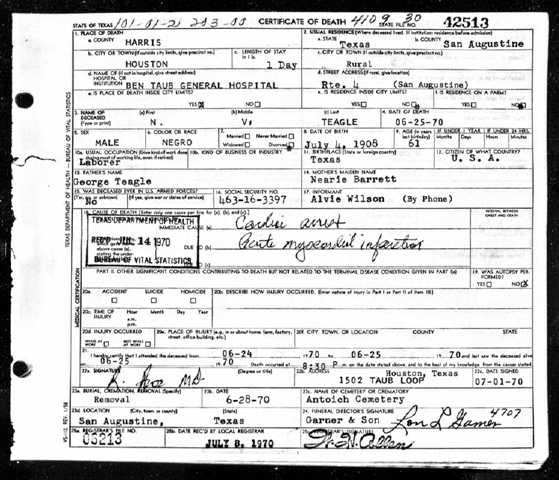 STATE OF TEXAS 101-01-2 203-00 CERTIFICATE OF DEATH 4109 30 STATE FILE NO. 42513
1. PLACE OF DEATH
a. COUNTY HARRIS
2. USUAL RESIDENCE (Where deceased lived. If institution: residence before admission)
a. STATE Texas b. COUNTY San Augustine
b. CITY OR TOWN (If outside city limits, give precinct no.) HOUSTON
c. LENGTH OF STAY 1 Day
c. CITY OR TOWN (If outside city limits, give precinct no.) Rural
d. NAME OF (If not in hospital, give street address) HOSPITAL OR INSTITUTION BEN TAUB GENERAL HOSPITAL
d. STREET ADDRESS (If rural, give location) Rte. 4 (San Augustine)
e. IS PLACE OF DEATH INSIDE CITY LIMITS? YES NO
e. IS RESIDENCE INSIDE CITY LIMITS? YES NO
f. IS RESIDENCE ON A FARM? YES NO
3. NAME OF DECEASED (Type or print) (a) First N. (b) Middle V. (c) Last TEAGLE
4. DATE OF DEATH 06-25-70
5. SEX MALE
6. COLOR OR RACE NEGRO
7. Married Never Married Widowed Divorced
8. DATE OF BIRTH July 4, 1908
9. AGE (In years last birthday) 61
IF UNDER 1 YEAR Months Days
IF UNDER 24 HRS. Hours Minutes
10a. USUAL OCCUPATION (Give kind of work done during most of working life, even if retired) Laborer
10b. KIND OF BUSINESS OR INDUSTRY
11. BIRTHPLACE (State or foreign country) Texas
12. CITIZEN OF WHAT COUNTRY? U. S. A.
13. FATHER'S NAME George Teagle
14. MOTHER'S MAIDEN NAME Nearie Barrett
15. WAS DECEASED EVER IN U.S. ARMED FORCES? No
16. SOCIAL SECURITY NO. 463-16-3397
17. INFORMANT Alvie Wilson (By Phone)
18. CAUSE OF DEATH [Enter only one cause per line for (a), (b), and (c).]
INTERVAL BETWEEN ONSET AND DEATH
TEXAS DEPARTMENT OF HEALTH
IMMEDIATE CAUSE (a) Cardiac arrest
REC'D JUL 14 1970
DUE TO (b) Acute myocardial infarction
BUREAU OF VITAL STATISTICS
DUE TO (c)
PART II. OTHER SIGNIFICANT CONDITIONS CONTRIBUTING TO DEATH BUT NOT RELATED TO THE TERMINAL DISEASE CONDITION GIVEN IN PART I(a)
19. WAS AUTOPSY PERFORMED? YES NO
20a. ACCIDENT SUICIDE HOMICIDE
20b. DESCRIBE HOW INJURY OCCURRED. (Enter nature of injury in Part I or Part II of item 18)
20c. TIME OF INJURY Hour Month Day Year
a.m.
p.m.
20d. INJURY OCCURRED
WHILE AT WORK NOT WHILE AT WORK
20e. PLACE OF INJURY (e.g., in or about home, farm, factory, street, office building, etc.)
20f. CITY, TOWN, OR LOCATION COUNTY STATE
21. I hereby certify that I attended the deceased from 06-24 1970 to 06-25 1970 and last saw the deceased alive
on 06-25 1970 Death occurred at 8:30 P m. on the date stated above, and to the best of my knowledge from the causes stated.
22a. SIGNATURE (Degree or title) MD
22b. ADDRESS Houston, Texas
1502 TAUB LOOP
22c. DATE SIGNED 07-01-70
23a. BURIAL, CREMATION, REMOVAL (Specify) Removal
23b. DATE 6-28-70
23c. NAME OF CEMETERY OR CREMATORY Antoich Cemetery
23d. LOCATION (City, town, or county) (State) San Augustine, Texas
24. FUNERAL DIRECTOR'S SIGNATURE Garner & Son Lon L Garner 4707
25a. REGISTRAR'S FILE NO. 05213
25b. DATE REC'D BY LOCAL REGISTRAR JULY 8, 1970
25c. REGISTRAR'S SIGNATURE
TEXAS DEPARTMENT OF HEALTH - BUREAU OF VITAL STATISTICS
MEDICAL CERTIFICATION